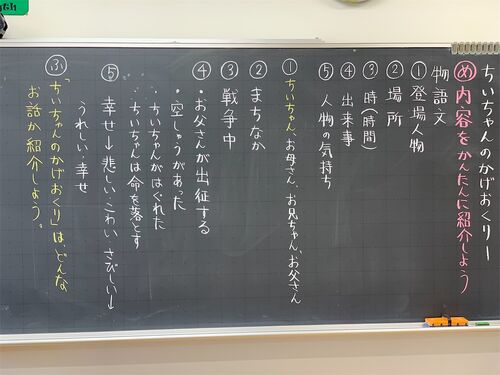 ちいちゃんのかげおくり
め 内容をかんたんに紹介しよう
物語文
①登場人物
②場所
③時(時間)
④出来事
⑤人物の気持ち
①ちいちゃん、お母さん、お兄ちゃん、お父さん
②まちなか
③戦争中
④・お父さんが出征する
・空しゅうがあった
・ちいちゃんがはぐれた
・ちいちゃんは命を落とす
⑤幸せ→悲しい・こわい・さびしい→
うれしい・幸せ
ふ「ちいちゃんのかげおくり」は、どんな
お話か紹介しよう。